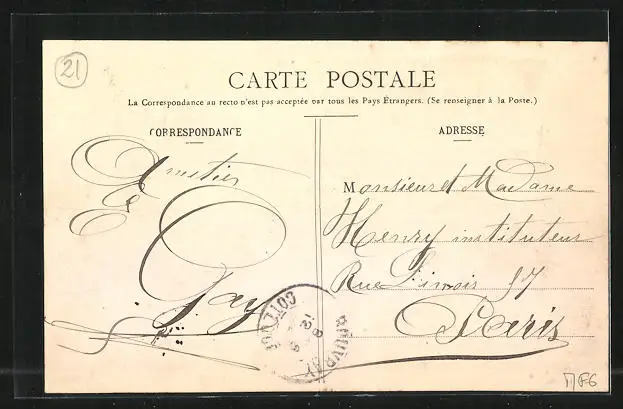 21
CARTE POSTALE
La Correspondance au recto n'est pas acceptée par tous les Pays Étrangers. (Se renseigner à la Poste.)
CORRESPONDANCE
Amitiés
Gay
ADRESSE
Monsieur et Madame
Henry instituteur
Rue 57
Paris
ROUVRAY
CÔTE D'OR